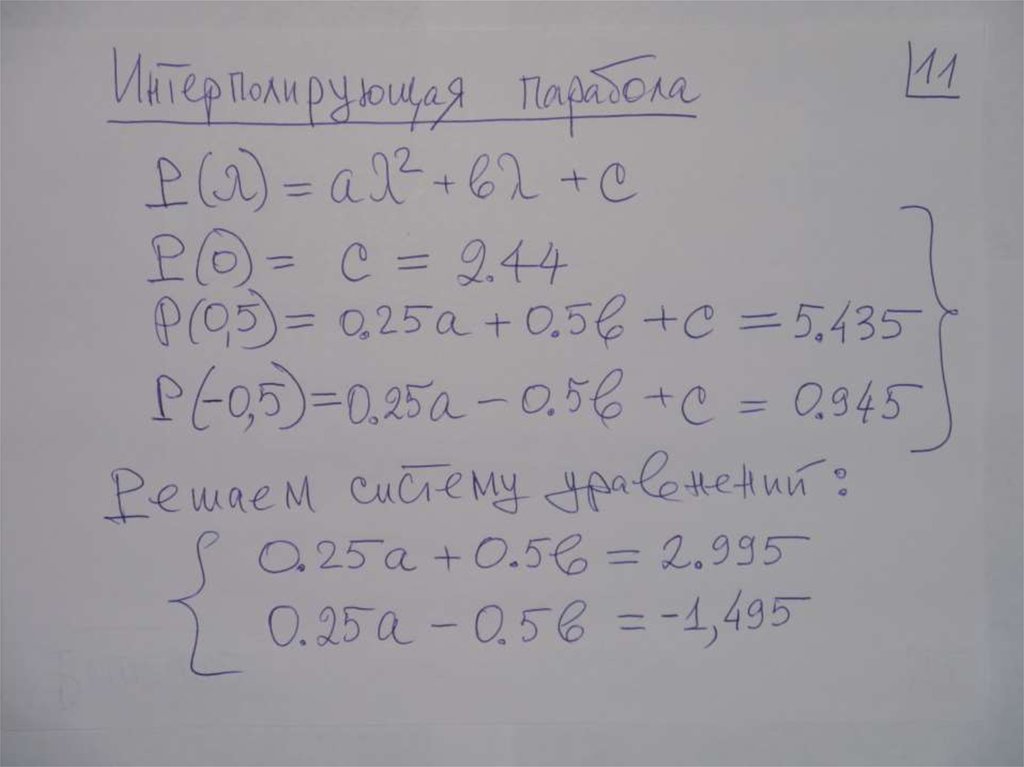 Интерполирующая парабола
11
P(λ) = aλ² + bλ + c
P(0) = c = 2.44
P(0,5) = 0.25a + 0.5b + c = 5.435
P(-0,5) = 0.25a - 0.5b + c = 0.945
Решаем систему уравнений:
0.25a + 0.5b = 2.995
0.25a - 0.5b = -1,495